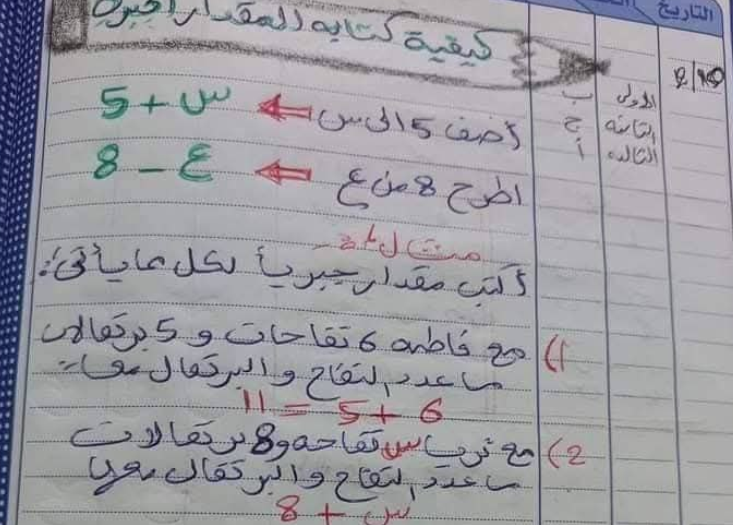 التاريخ
كيفية كتابة المقدار الجبري
الأولى ب
الثانية ج
الثالثة أ
أضف 5 الى س ⇐ س + 5
اطرح 8 من ع ⇐ ع - 8
مثال 3-
أكتب مقدار جبرياً لكل مايأتي:
1) مع فاطمه 6 تفاحات و 5 برتقالات
ما عدد التفاح والبرتقال معاً
6 + 5 = 11
2) مع زينب س تفاحه و 8 برتقالات
ما عدد التفاح والبرتقال معها
س + 8